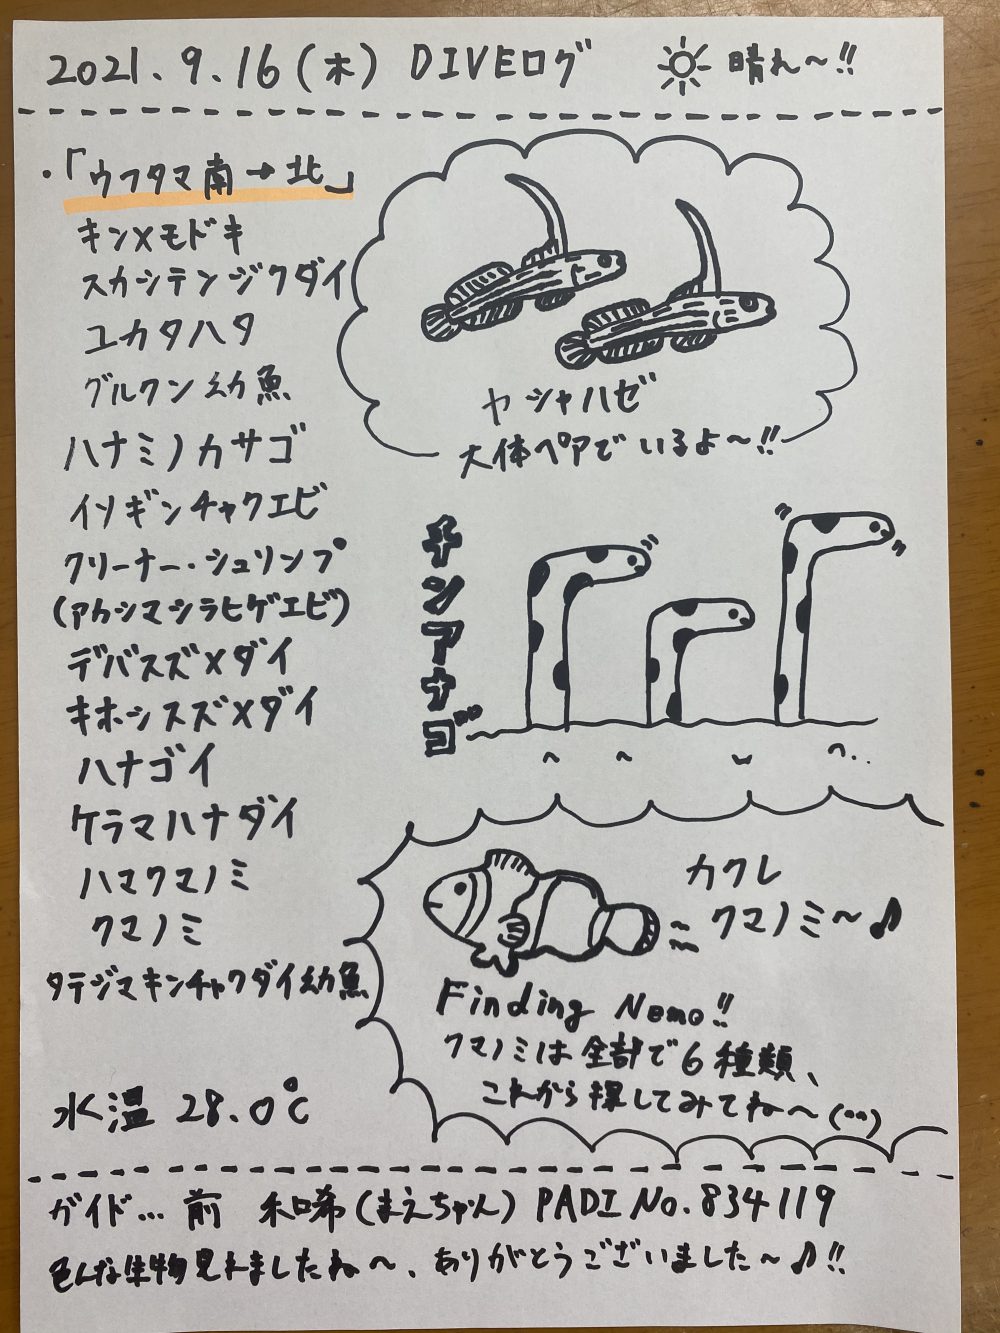 2021.9.16(木) DIVEログ 晴れ〜!!
・「ウフタマ南→北」
キンメモドキ
スカシテンジクダイ
ユカタハタ
グルクン幼魚
ハナミノカサゴ
イソギンチャクエビ
クリーナー・シュリンプ
(アカシマシラヒゲエビ)
デバスズメダイ
キホシスズメダイ
ハナゴイ
ケラマハナダイ
ハマクマノミ
クマノミ
タテジマキンチャクダイ幼魚
水温 28.0℃
ヤシャハゼ
大体ペアでいるよ〜!!
チンアナゴ
カクレ
クマノミ〜♪
Finding Nemo!!
クマノミは全部で6種類、
これから探してみてね〜(^^)
ガイド… 前 和希(まえちゃん) PADI No.834119
色んな生物見れましたね〜、ありがとうございました〜♪!!